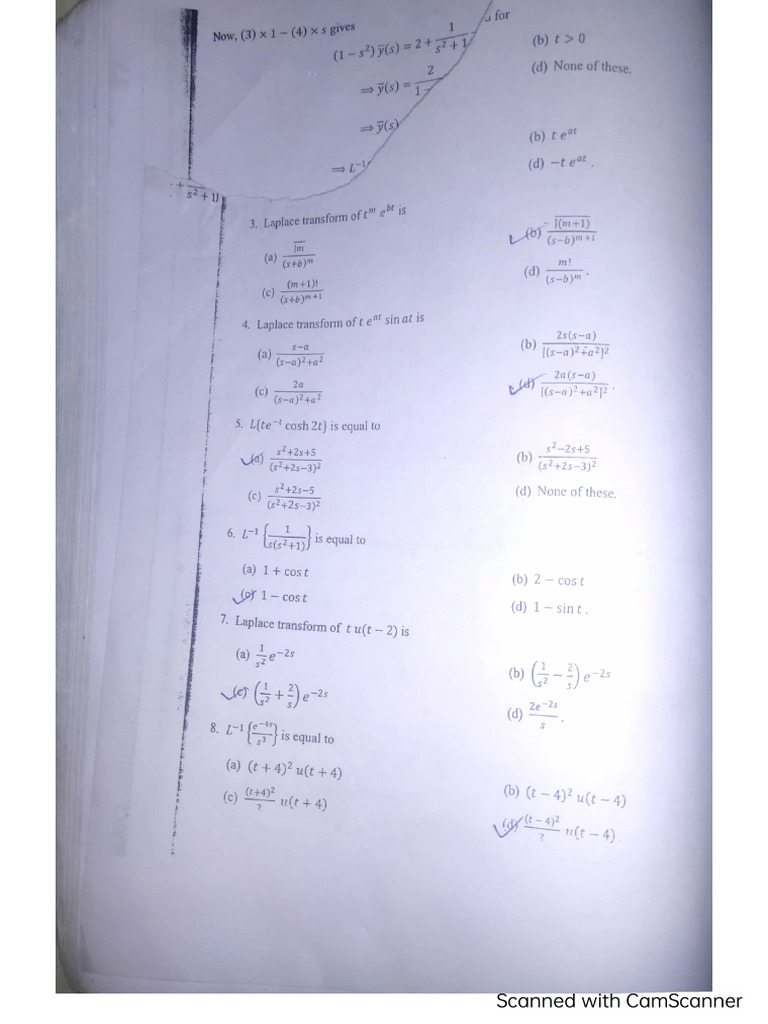 Now, (3) × 1 − (4) × s gives
(1 − s²) ȳ(s) = 2 + 1/(s² + 1)
⟹ ȳ(s) = 2/1 −
⟹ ȳ(s)
⟹ L⁻¹
+ /(s² + 1)
for
(b) t > 0
(d) None of these.
(b) t e^{at}
(d) −t e^{at} .
3. Laplace transform of t^m e^{bt} is
(a) Γm/(s+b)^m
(b) Γ(m+1)/(s−b)^{m+1}
(c) (m+1)!/(s+b)^{m+1}
(d) m!/(s−b)^m .
4. Laplace transform of t e^{at} sin at is
(a) s−a/(s−a)²+a²
(b) 2s(s−a)/[(s−a)²+a²]²
(c) 2a/(s−a)²+a²
(d) 2a(s−a)/[(s−a)²+a²]² .
5. L{te^{−t} cosh 2t} is equal to
(a) s²+2s+5/(s²+2s−3)²
(b) s²−2s+5/(s²+2s−3)²
(c) s²+2s−5/(s²+2s−3)²
(d) None of these.
6. L⁻¹ {1/s(s²+1)} is equal to
(a) 1 + cos t
(b) 2 − cos t
(c) 1 − cos t
(d) 1 − sin t .
7. Laplace transform of t u(t − 2) is
(a) 1/s² e^{−2s}
(b) (1/s² − 2/s) e^{−2s}
(c) (1/s² + 2/s) e^{−2s}
(d) 2e^{−2s}/s .
8. L⁻¹ {e^{−4s}/s³} is equal to
(a) (t + 4)² u(t + 4)
(b) (t − 4)² u(t − 4)
(c) (t+4)²/2 u(t + 4)
(d) (t − 4)²/2 u(t − 4)
Scanned with CamScanner